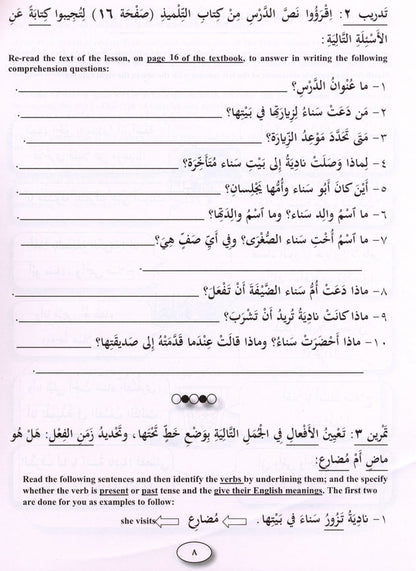 تَدريب ٢: اِقْرَؤُوا نَصَّ الدَّرْسِ مِنْ كِتابِ التِّلميذِ (صَفْحَة ١٦) لِتُجيبوا كِتابَةً عَنِ
الأَسْئِلَةِ التّالِيَةِ:
Re-read the text of the lesson, on page 16 of the textbook, to answer in writing the following
comprehension questions:
١- ما عُنْوانُ الدَّرْسِ؟
٢- مَن دَعَتْ سَناءُ لِزِيارَتِها في بَيْتِها؟
٣- مَتَى تَحَدَّدَ مَوْعِدُ الزِّيارَة؟
٤- لِماذا وَصَلَتْ نادِيَةُ إلى بَيْتِ سَناء مُتَأَخِّرَة؟
٥- أَيْنَ كانَ أَبُو سَناء وأُمُّها يَجْلِسانِ؟
٦- ما اَسْمُ والِد سَناء؟ وما اَسْمُ والِدَتِها؟
٧- ما اَسْمُ أُخْتِ سَناء الصُّغْرَى؟ وفي أَيِّ صَفٍّ هِيَ؟
٨- ماذا دَعَتْ أُمُّ سَناء الضَّيْفَةَ أَنْ تَفْعَلَ؟
٩- ماذا كانَتْ نادِيَةُ تُريدُ أَنْ تَشْرَبَ؟
١٠- ماذا أَحْضَرَتْ سَناءُ؟ وماذا قالَتْ عِنْدَما قَدَّمَتْهُ إلى صَديقَتِها؟
تَمْرين ٣: تَعْيينُ الأَفْعالِ في الجُمَلِ التّالِيَةِ بِوَضْعِ خَطٍّ تَحْتَها، وتَحْديدُ زَمَنِ الفِعْل: هَلْ هُو
ماضٍ أَمْ مُضارِع:
Read the following sentences and then identify the verbs by underlining them; and the specify
whether the verb is present or past tense and the give their English meanings. The first two
are done for you as examples to follow:
١- نادِيَةُ تَزُورُ سَناءَ في بَيْتِها. مُضارِع she visits
٨